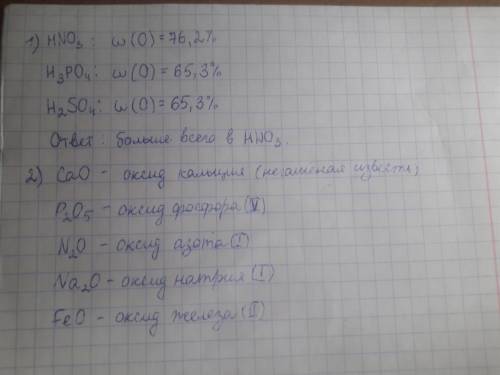 1) HNO₃ : ω(O)=76,2%
H₃PO₄: ω(O)=65,3%
H₂SO₄: ω(O)=65,3%
Ответ: больше всего в HNO₃.
2) CaO - оксид кальция (негашеная известь)
P₂O₅ - оксид фосфора (V)
N₂O - оксид азота (I)
Na₂O - оксид натрия (I)
FeO - оксид железа (II)